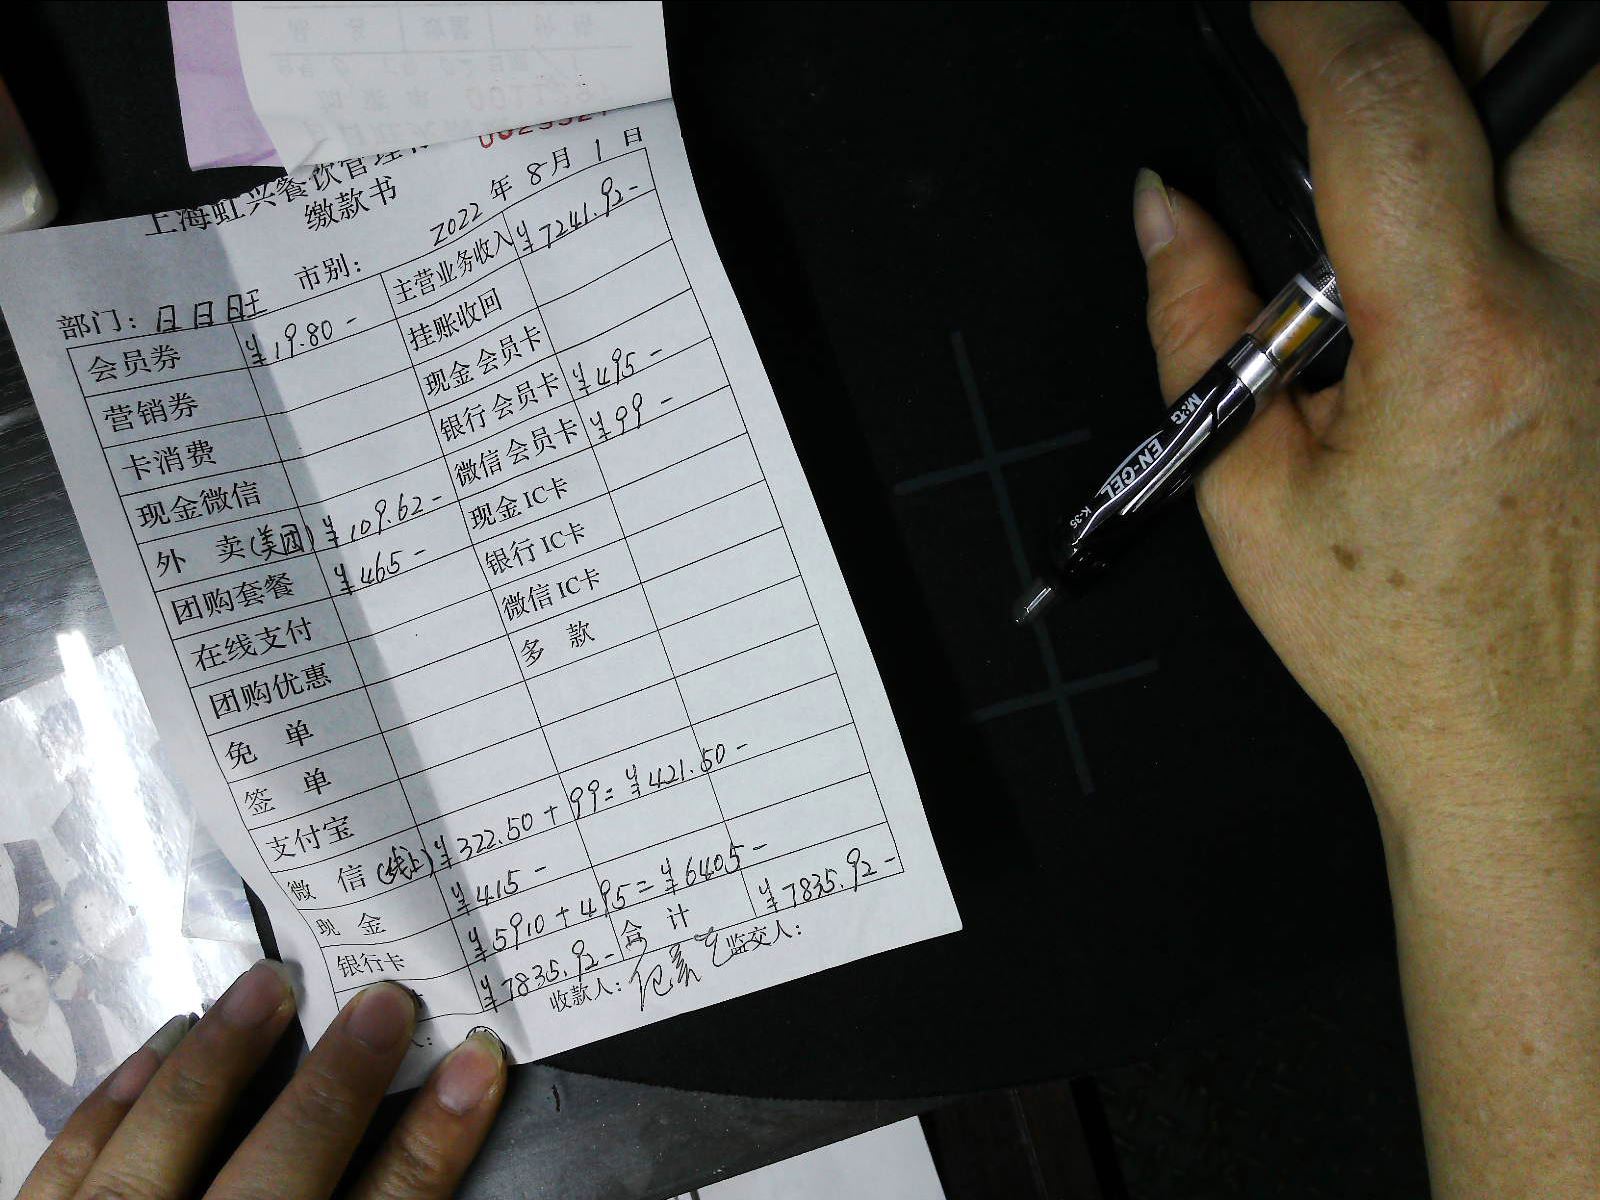 上海虹兴餐饮管理
缴款书
2022年8月1日
部门：日日旺 市别：
会员券 ¥19.80- 主营业务收入 ¥7241.92-
营销券 挂账收回
卡消费 现金会员卡
现金微信 银行会员卡 ¥495-
外 卖(美团) ¥109.62- 微信会员卡 ¥99-
团购套餐 ¥465- 现金IC卡
在线支付 银行IC卡
团购优惠 微信IC卡
免 单 多 款
签 单
支付宝
微 信(线上) ¥322.50+99=¥421.50-
现 金 ¥415-
银行卡 ¥5910+495=¥6405-
¥7835.92- 合 计 ¥7835.92-
人： 收款人： 监交人：
M&G EN-GEL K-35